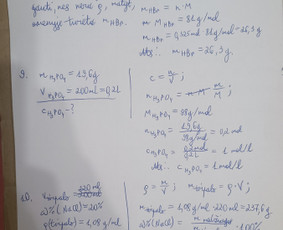 gauti, nes nėra ρ, matyt,
m HBr = n · M
M HBr = 81 g/mol
m HBr = 0,325 mol · 81 g/mol = 26,3 g
Ats.: m HBr = 26,3 g.
9.
m H₃PO₄ = 19,6 g
V H₃PO₄ = 200 ml = 0,2 l
c H₃PO₄ - ?
c = n/V ;
n H₃PO₄ = m/M ;
M H₃PO₄ = 98 g/mol
n H₃PO₄ = 19,6 g / 98 g/mol = 0,2 mol
c H₃PO₄ = 0,2 mol / 0,2 l = 1 mol/l
Ats.: c H₃PO₄ = 1 mol/l
10.
V tirpalo = 220 ml
ω% (NaOH) = 20%
ρ (tirpalo) = 1,08 g/ml
ρ = m/V ; m tirpalo = ρ · V ;
m tirpalo = 1,08 g/ml · 220 ml = 237,6 g
ω% (NaOH) = · 100%